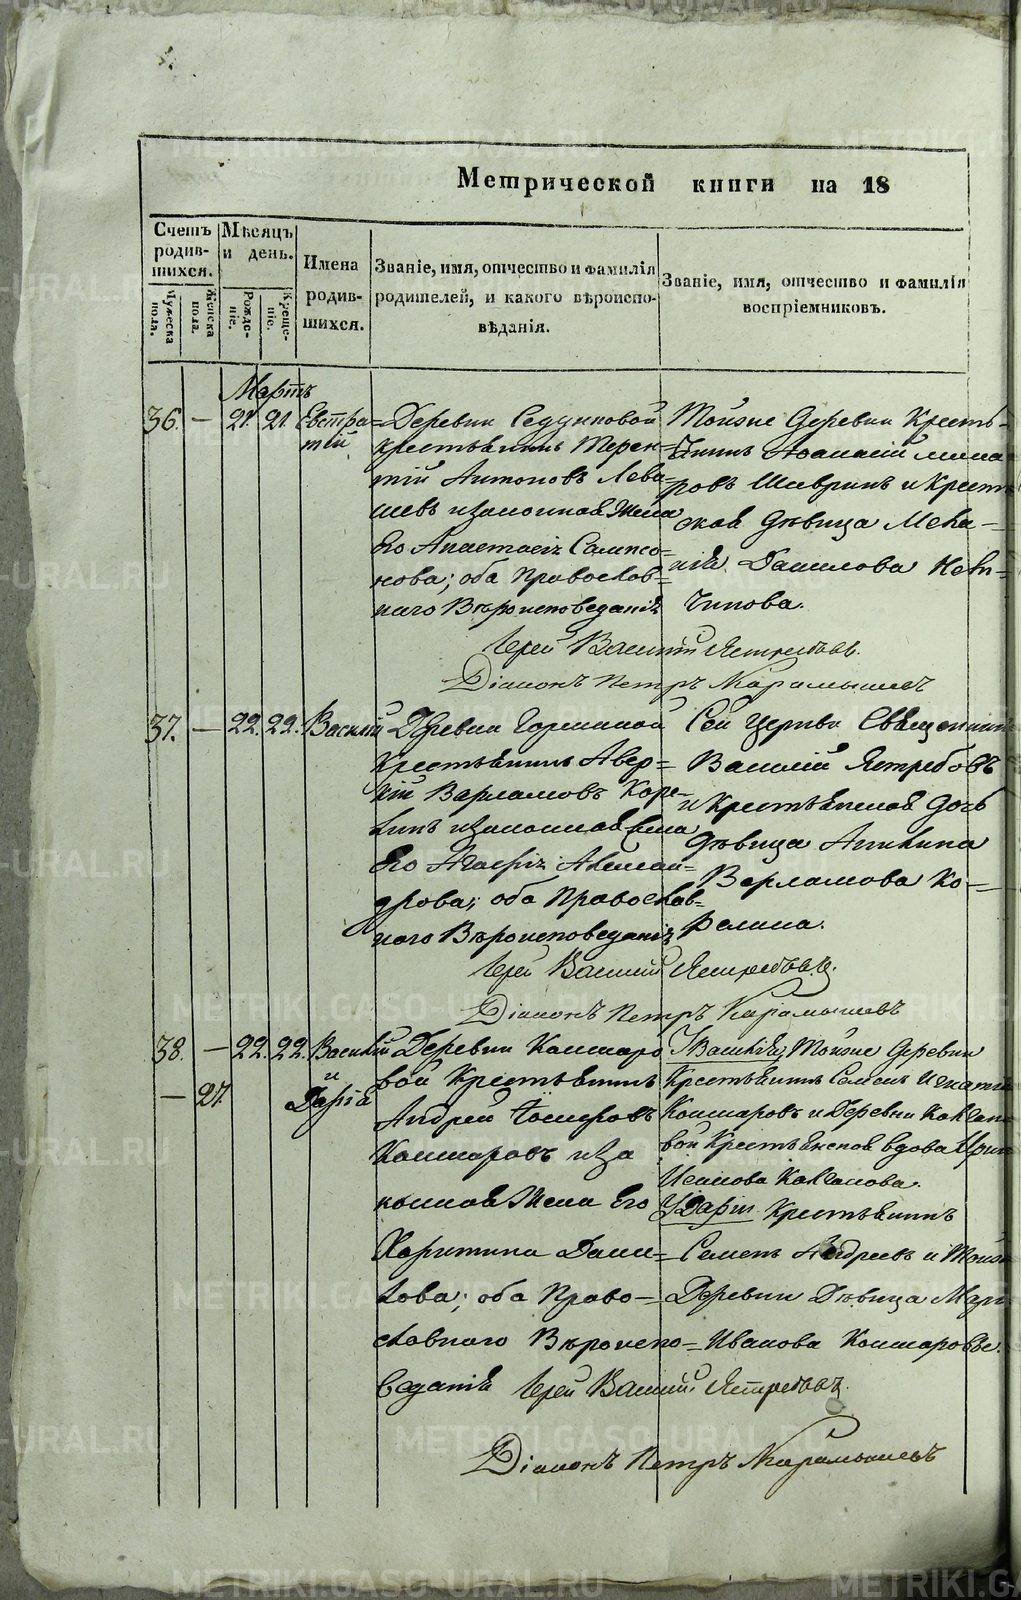 Метрической книги на 18
Счетъ родившихся. Мѣсяцъ и день. Имена родившихся. Званіе, имя, отчество и фамилія родителей, и какого вѣроисповѣданія. Званіе, имя, отчество и фамилія воспріемниковъ.
Мужеска пола. Женска пола. Рожденіе. Крещеніе.
Мартъ
36. — 21. 21. Евстра=
тій
Деревни
крестьянинъ Терен=
тій Антоновъ Лева=
шевъ и законная Жена
Его Анастасія Сампсо=
нова; оба Православ=
наго Вѣроисповеданія
Тойже Деревни Кресть=
янинъ Афанасій
и Крестьян
ская Дѣвица Мела=
нія Данилова
Іерей Василій Ястребовъ.
Діаконъ Петръ Карамышевъ
37. — 22. 22. Василій
Деревни
Крестьянинъ Авер=
кій Варламовъ Коре=
линъ и законная Жена
Его Агафія Алексан=
дрова; оба Православ=
наго Вѣроисповеданія
Сей Церкви Священник
Василій Ястребовъ
и Крестьянская Дочь
Дѣвица Акилина
Варламова Ко=
релина.
Іерей Василій Ястребовъ.
Діаконъ Петръ Карамышевъ
38. — 22. 22. Василій
и
— 27. Дарія
Деревни Кошкаро
вой Крестьянинъ
Андрей
Кошкаровъ и за
конная Жена Его
Харитина Дани=
лова; оба Право=
славнаго Вѣроиспо=
веданія
У Василія, Тойже Деревни
Крестьянинъ Семенъ Игнатъ
Кошкаровъ и Деревни
вой Крестьянская вдова Ирин
У Даріи Крестьянинъ
Семенъ Андреевъ и Тойже
Деревни Дѣвица Мар
Иванова Кошкаровы.
Іерей Василій Ястребовъ.
Діаконъ Петръ Карамышевъ
METRIKI.GASO-URAL.RU